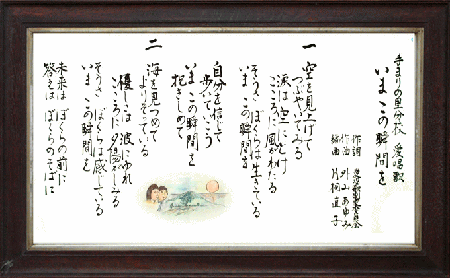 寺まりの里分校 愛唱歌
いまこの瞬間を
作詞
作曲 外山あゆみ
編曲 片桐直子
一 空を見上げて
つぶやいてみる
涙は空にとけ
こころに風がわたる
そうさ ぼくらは生きている
いまこの瞬間を
自分を信じて
歩いていこう
いまこの瞬間を
抱きしめて
二 海を見つめて
よりそっている
優しさは波にゆれ
こころに夕陽がしみる
そうさ ぼくらは感じている
いまこの瞬間を
未来は ぼくらの前に
答えは ぼくらのそばに